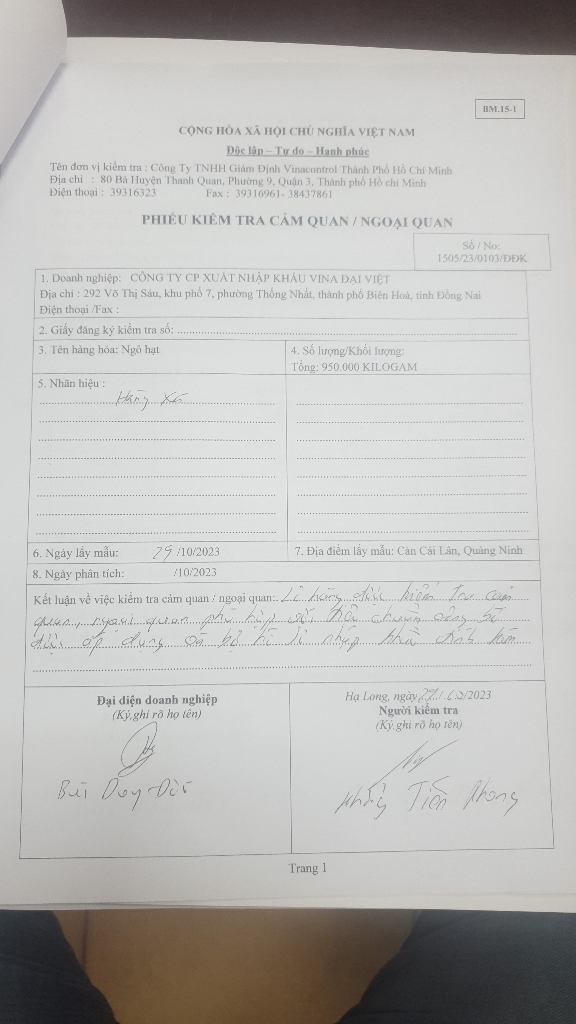 BM.15-1
CỘNG HÒA XÃ HỘI CHỦ NGHĨA VIỆT NAM
Độc lập – Tự do – Hạnh phúc
Tên đơn vị kiểm tra : Công Ty TNHH Giám Định Vinacontrol Thành Phố Hồ Chí Minh
Địa chỉ : 80 Bà Huyện Thanh Quan, Phường 9, Quận 3, Thành phố Hồ chí Minh
Điện thoại : 39316323 Fax : 39316961- 38437861
PHIẾU KIỂM TRA CẢM QUAN / NGOẠI QUAN
Số / No:
1505/23/0103/ĐĐK
1. Doanh nghiệp: CÔNG TY CP XUẤT NHẬP KHẨU VINA ĐẠI VIỆT
Địa chỉ : 292 Võ Thị Sáu, khu phố 7, phường Thống Nhất, thành phố Biên Hoà, tỉnh Đồng Nai
Điện thoại /Fax :
2. Giấy đăng ký kiểm tra số:
3. Tên hàng hóa: Ngô hạt
4. Số lượng/Khối lượng:
Tổng: 950.000 KILOGAM
5. Nhãn hiệu :
Hàng xá
6. Ngày lấy mẫu: 29 /10/2023
7. Địa điểm lấy mẫu: Cản Cái Lân, Quảng Ninh
8. Ngày phân tích: /10/2023
Kết luận về việc kiểm tra cảm quan / ngoại quan: Lô hàng được kiểm tra cảm
quan, ngoại quan phù hợp với tiêu chuẩn công bố
được áp dụng và bộ hồ sơ nhập khẩu đính kèm
Đại diện doanh nghiệp
(Ký,ghi rõ họ tên)
Bùi Duy
Hạ Long, ngày 29/10/2023
Người kiểm tra
(Ký,ghi rõ họ tên)
Tiến Phong
Trang 1